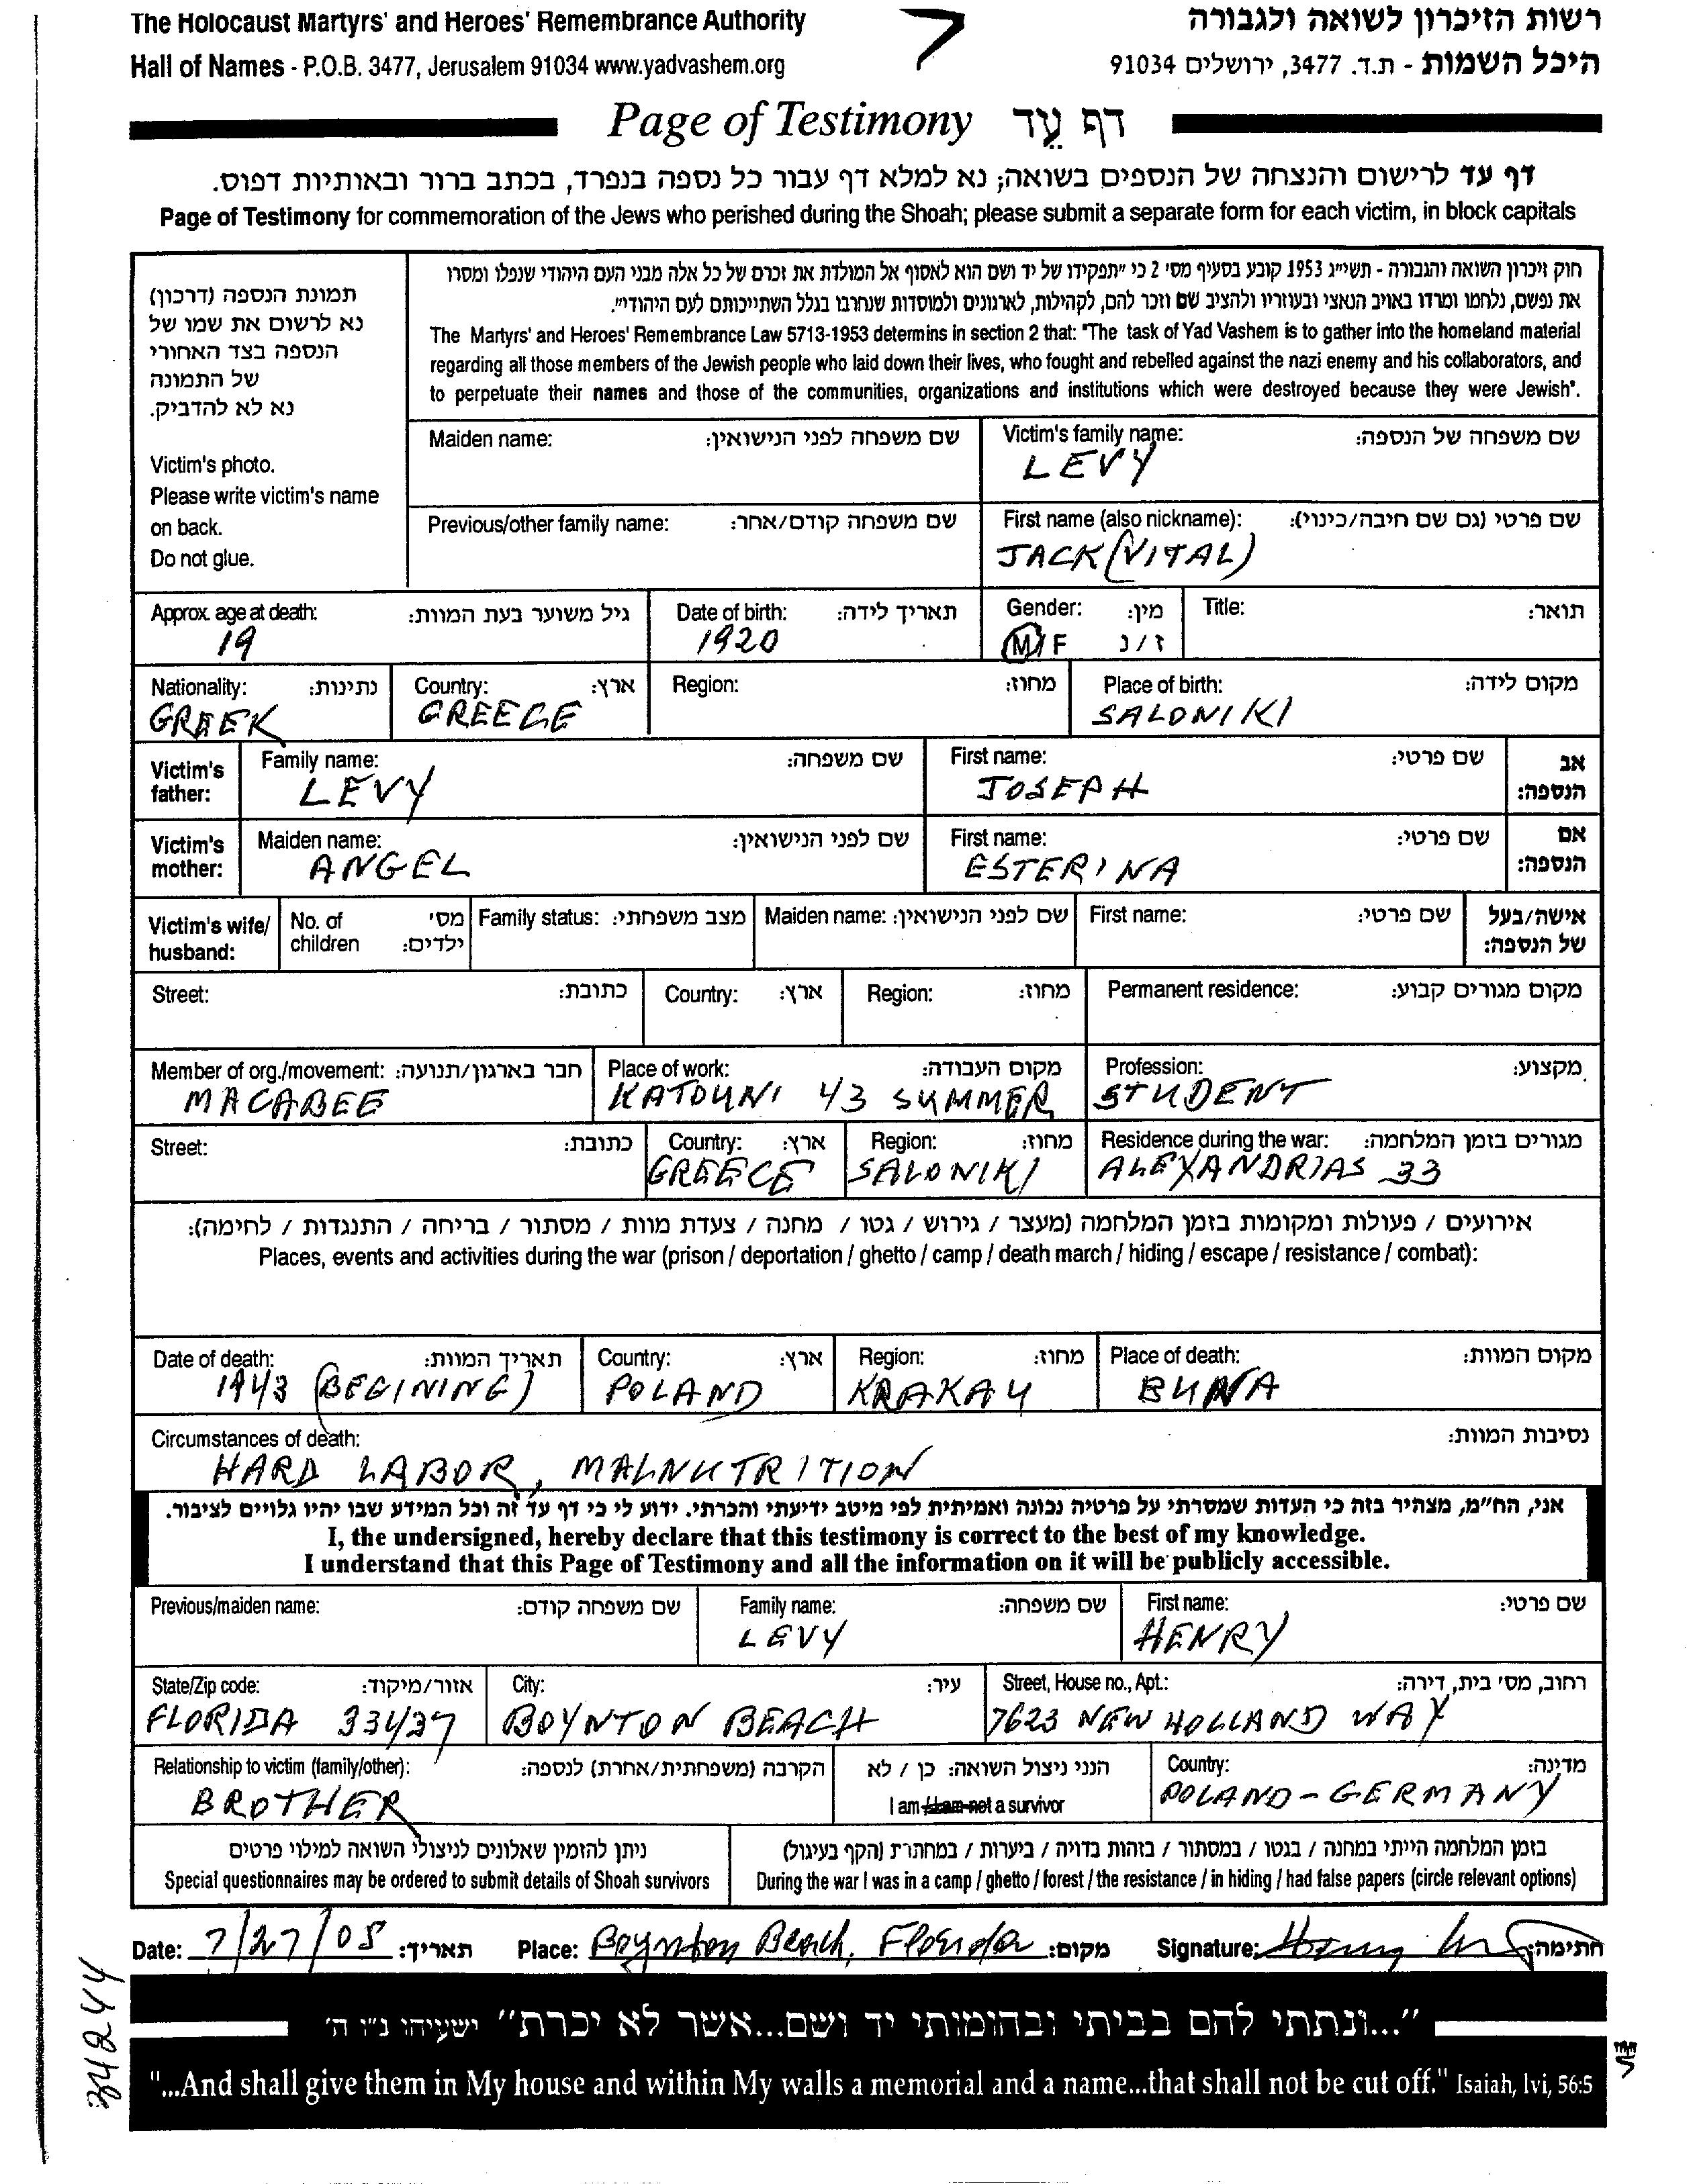 The Holocaust Martyrs' and Heroes' Remembrance Authority
רשות הזיכרון לשואה ולגבורה
Hall of Names - P.O.B. 3477, Jerusalem 91034 www.yadvashem.org
היכל השמות - ת.ד. 3477, ירושלים 91034
Page of Testimony דף עֵד
דף עד לרישום והנצחה של הנספים בשואה; נא למלא דף עבור כל נספה בנפרד, בכתב ברור ובאותיות דפוס.
Page of Testimony for commemoration of the Jews who perished during the Shoah; please submit a separate form for each victim, in block capitals
תמונת הנספה (דרכון)
נא לרשום את שמו של
הנספה בצד האחורי
של התמונה
נא לא להדביק.
Victim's photo.
Please write victim's name
on back.
Do not glue.
חוק זיכרון השואה והגבורה - תשי״ג 1953 קובע בסעיף מס׳ 2 כי ״תפקידו של יד ושם הוא לאסוף אל המולדת את זכרם של כל אלה מבני העם היהודי שנפלו ומסרו
את נפשם, נלחמו ומרדו באויב הנאצי ובעוזריו ולהציב שם וזכר להם, לקהילות, לארגונים ולמוסדות שנחרבו בגלל השתייכותם לעם היהודי״.
The Martyrs' and Heroes' Remembrance Law 5713-1953 determins in section 2 that: "The task of Yad Vashem is to gather into the homeland material
regarding all those members of the Jewish people who laid down their lives, who fought and rebelled against the nazi enemy and his collaborators, and
to perpetuate their names and those of the communities, organizations and institutions which were destroyed because they were Jewish".
Maiden name: שם משפחה לפני הנישואין:
Victim's family name: שם משפחה של הנספה:
LEVY
Previous/other family name: שם משפחה קודם/אחר:
First name (also nickname): שם פרטי (גם שם חיבה/כינוי):
JACK (VITAL)
Approx. age at death: גיל משוער בעת המוות: Date of birth: תאריך לידה: Gender: מין: Title: תואר:
19 1920 M/F ז/נ
Nationality: נתינות: Country: ארץ: Region: מחוז: Place of birth: מקום לידה:
GREEK GREECE SALONIKI
Victim's father: Family name: שם משפחה: First name: שם פרטי: אב הנספה:
LEVY JOSEPH
Victim's mother: Maiden name: שם לפני הנישואין: First name: שם פרטי: אם הנספה:
ANGEL ESTERINA
Victim's wife/ husband: No. of children מס׳ ילדים: Family status: מצב משפחתי: Maiden name: שם לפני הנישואין: First name: שם פרטי: אישה/בעל של הנספה:
Street: כתובת: Country: ארץ: Region: מחוז: Permanent residence: מקום מגורים קבוע:
Member of org./movement: חבר בארגון/תנועה: Place of work: מקום העבודה: Profession: מקצוע:
MACABEE KATOUNI 43 SUMMER STUDENT
Street: כתובת: Country: ארץ: Region: מחוז: Residence during the war: מגורים בזמן המלחמה:
GREECE SALONIKI ALEXANDRIAS 33
אירועים / פעולות ומקומות בזמן המלחמה (מעצר / גירוש / גטו / מחנה / צעדת מוות / מסתור / בריחה / התנגדות / לחימה):
Places, events and activities during the war (prison / deportation / ghetto / camp / death march / hiding / escape / resistance / combat):
Date of death: תאריך המוות: Country: ארץ: Region: מחוז: Place of death: מקום המוות:
1943 (BEGINING) POLAND KRAKAU BUNA
Circumstances of death: נסיבות המוות:
HARD LABOR, MALNUTRITION
אני, הח״מ, מצהיר בזה כי העדות שמסרתי על פרטיה נכונה ואמיתית לפי מיטב ידיעתי והכרתי. ידוע לי כי דף עד זה וכל המידע שבו יהיו גלויים לציבור.
I, the undersigned, hereby declare that this testimony is correct to the best of my knowledge.
I understand that this Page of Testimony and all the information on it will be publicly accessible.
Previous/maiden name: שם משפחה קודם: Family name: שם משפחה: First name: שם פרטי:
LEVY HENRY
State/Zip code: אזור/מיקוד: City: עיר: Street, House no., Apt.: רחוב, מס׳ בית, דירה:
FLORIDA 33437 BOYNTON BEACH 7623 NEW HOLLAND WAY
Relationship to victim (family/other): הקרבה (משפחתית/אחרת) לנספה: הנני ניצול השואה: כן / לא Country: מדינה:
BROTHER I am / I am not a survivor POLAND-GERMANY
ניתן להזמין שאלונים לניצולי השואה למילוי פרטים
Special questionnaires may be ordered to submit details of Shoah survivors
בזמן המלחמה הייתי במחנה / בגטו / במסתור / בזהות בדויה / ביערות / במחתרת (הקף בעיגול)
During the war I was in a camp / ghetto / forest / the resistance / in hiding / had false papers (circle relevant options)
Date: 7/27/05 תאריך: Place: Boynton Beach, Florida מקום: Signature: Henry חתימה:
"...ונתתי להם בביתי ובחומותי יד ושם...אשר לא יכרת" ישעיהו נ״ו ה׳
"...And shall give them in My house and within My walls a memorial and a name...that shall not be cut off." Isaiah, lvi, 56:5
34244